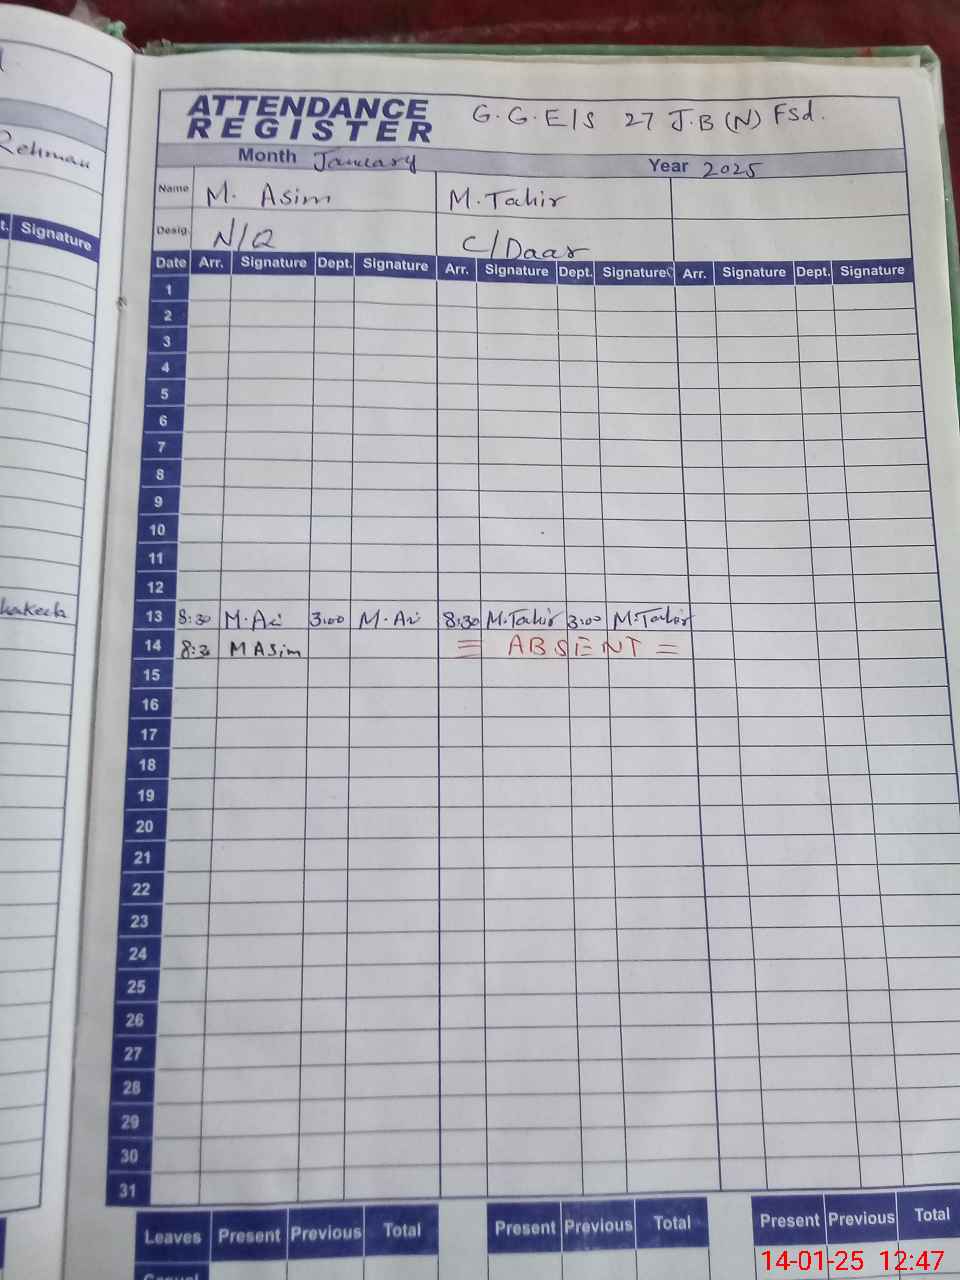 Rehman
t. Signature
hakeela
ATTENDANCE
REGISTER
G.G.E/S 27 J.B (N) Fsd.
Month January Year 2025
Name M. Asim M. Tahir
Desig. N/Q C/Daar
Date Arr. Signature Dept. Signature Arr. Signature Dept. Signature Arr. Signature Dept. Signature
1
2
3
4
5
6
7
8
9
10
11
12
13 8:30 M. Ai 3:00 M. Ai 8:30 M.Tahir 3:00 M.Tahir
14 8:30 M Asim = ABSENT =
15
16
17
18
19
20
21
22
23
24
25
26
27
28
29
30
31
Leaves Present Previous Total Present Previous Total Present Previous Total
14-01-25 12:47